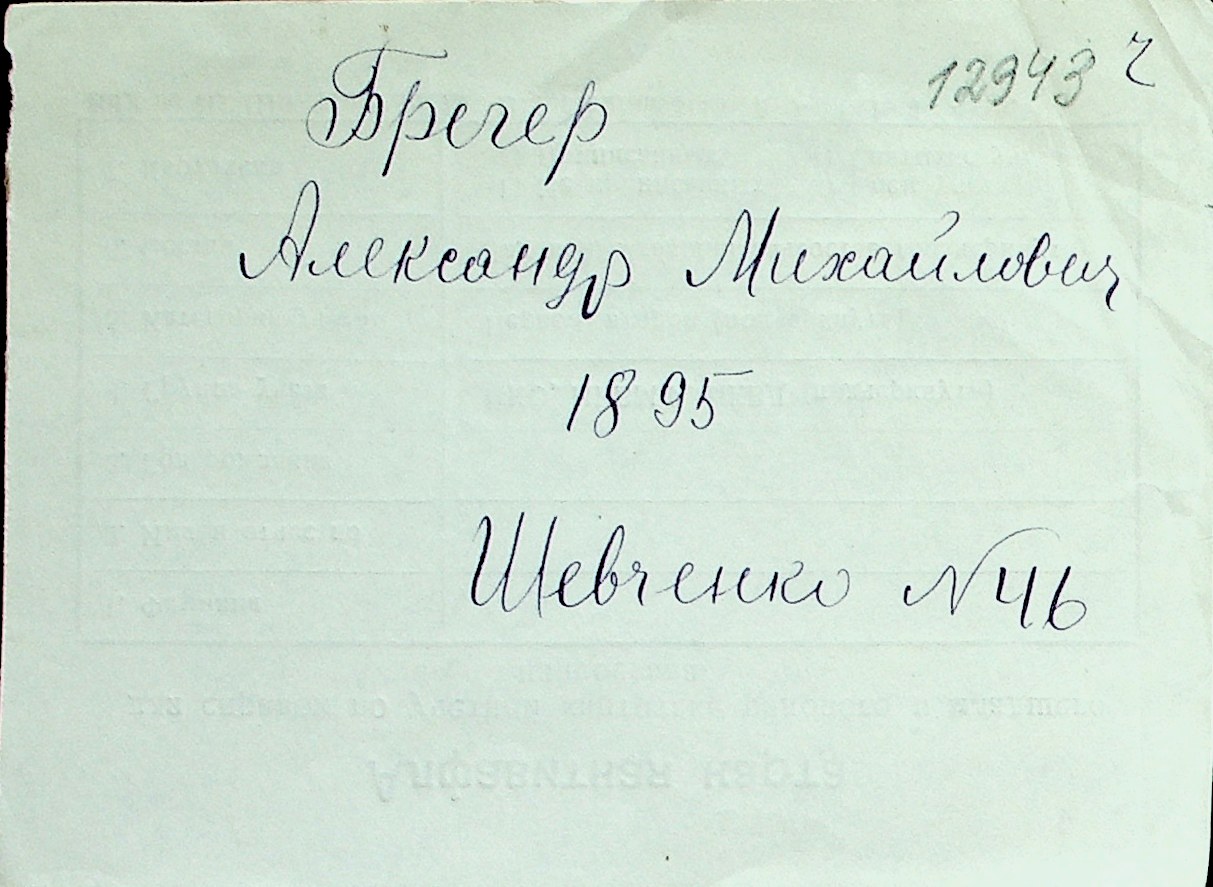 12943 ч
Бречер
Александр Михайлович
1895
Шевченко № 46